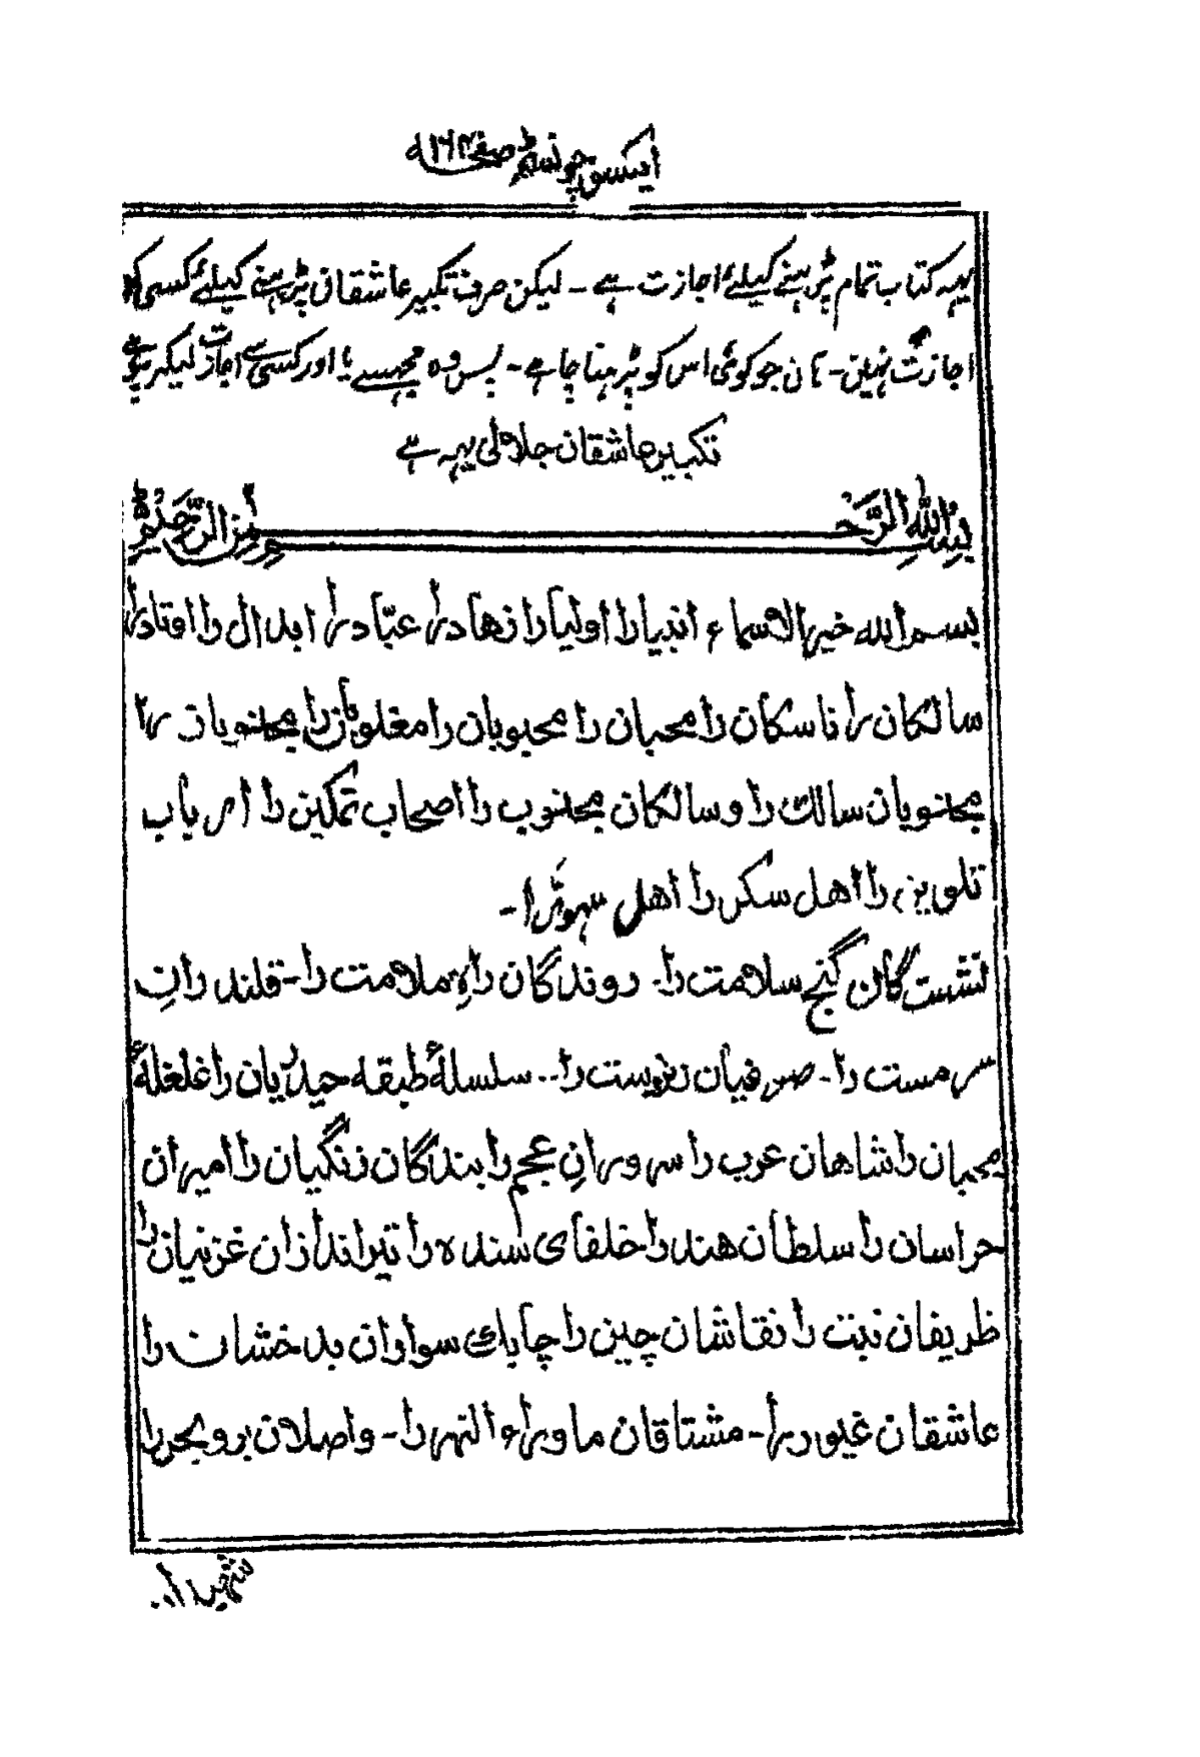 ایکسو چونسٹھ صفحہ ۱۶۴
یہہ کتاب تمام پڑہنے کیلئے اجازت ہے ۔ لیکن صرف تکبیر عاشقان پڑہنے کیلئے کسی کو
اجازت نہین ۔ ہان جو کوئی اس کو پڑہنا چاہے ۔ پس وہ مجہسے یا اور کسی سے اجازت لیکر پڑہے
تکبیر عاشقان جلالی یہہ ہے
بسم الله الرحمن الرحیم
بسم الله خیر الاسماء انبیا را اولیا را زهاد را عبّاد را ابدال را اوتاد را
سالکان را ناسکان را محبان را محبوبان را مغلوبان را مجذوبان را
مجذوبان سالک را و سالکان مجذوب را اصحاب تمکین را ارباب
تلوین را اهل سکر را اهل سہو را ۔
نشست گان کُنج سلامت را ۔ روندگان راہِ ملامت را ۔ قلندرانِ
سرمست را ۔ صوفیان را ۔ سلسلۂ طبقہ حیدریان را غلغلۂ
محبان را شاهان عرب را سرورانِ عجم را بندگان زنگیان را امیران
خراسان را سلطان هند را خلفای سندہ را تیراندازان غزنیان را
ظریفان تبت را نقاشان چین را چابک سواران بدخشان را
عاشقان غیور را ۔ مشتاقان ماوراء النهر را ۔ واصلان بر و بحر را
شهیدان